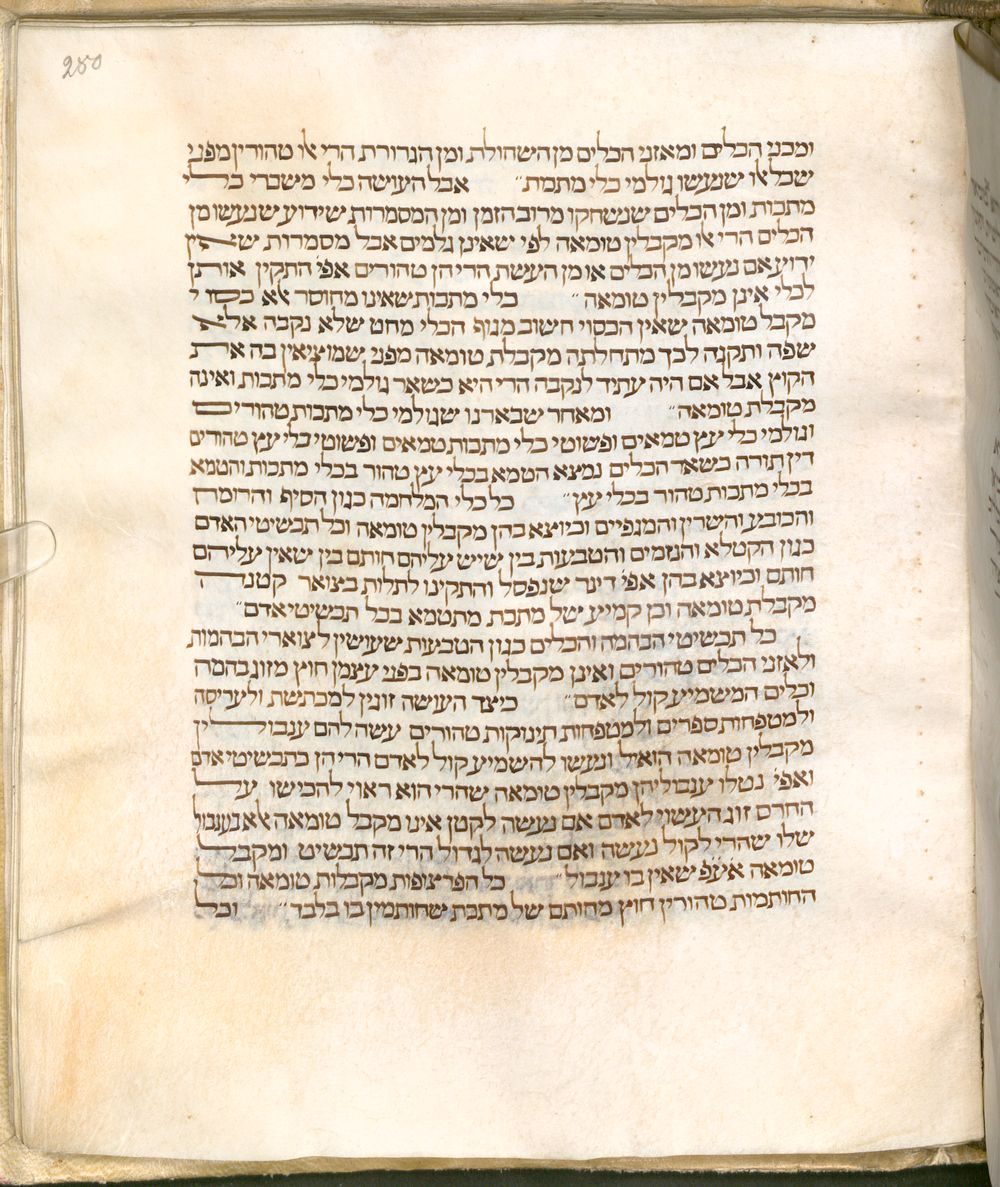 280
ומכני הכלים ומאזני הכלים מן השחולת ומן הגרורת הרי אלו טהורין מפני
שכל אלו שנעשו גולמי כלי מתכת״ אבל העושה כלי משברי כלי
מתכות ומן הכלים שנשחקו מרוב הזמן ומן המסמרות שידוע שנעשו מן
הכלים הרי אלו מקבלין טומאה לפי שאינן גלמים אבל מסמרות שאין
ידוע אם נעשו מן הכלים או מן העשת הרי הן טהורים אפי׳ התקין אותן
לכלי אינן מקבלין טומאה״ כלי מתכות שאינו מחוסר אלא כסוי
מקבל טומאה שאין הכסוי חשוב מגוף הכלי מחט שלא נקבה אלא
שפה ותקנה לכך מתחלתה מקבלת טומאה מפני שמוציאין בה את
הקוץ אבל אם היה עתיד לנקבה הרי היא כשאר גולמי כלי מתכות ואינה
מקבלת טומאה״ ומאחר שבארנו שגולמי כלי מתכות טהורים
וגולמי כלי עץ טמאים ופשוטי כלי מתכות טמאים ופשוטי כלי עץ טהורים
דין תורה כשאר הכלים נמצא הטמא בכלי עץ טהור בכלי מתכות והטמא
בכלי מתכות טהור בכלי עץ״ כל כלי המלחמה כגון הסיף והרומח
והכובע והשרין והמגפיים וכיוצא בהן מקבלין טומאה וכל תכשיטי האדם
כגון הקטלא והנזמים והטבעות בין שיש עליהם חותם בין שאין עליהם
חותם וכיוצא בהן אפי׳ דינר שנפסל והתקינו לתלות בצואר קטנה
מקבלת טומאה וכן קמיע של מתכת מתטמא בכל תכשיטי אדם״
כל תכשיטי הבהמה והכלים כגון הטבעות שעושין לצוארי הבהמות
ולאזני הכלים טהורים ואינן מקבלין טומאה בפני עצמן חוץ מזוג בהמה
וכלים המשמיע קול לאדם״ כיצד העושה זוגין למכתשת ולעריסה
ולמטפחות ספרים ולמטפחות תינוקות טהורים עשה להם ענבולין
מקבלין טומאה הואיל ונעשו להשמיע קול לאדם הרי הן כתכשיטי אדם
ואפי׳ נטלו ענבוליהן מקבלין טומאה שהרי הוא ראוי להכישו על
החרס זוג העשוי לאדם אם נעשה לקטן אינו מקבל טומאה אלא בענבול
שלו שהרי לקול נעשה ואם נעשה לגדול הרי זה תכשיט ומקבל
טומאה אע״פ שאין בו ענבול״ כל הפרצופות מקבלות טומאה וכל
החותמות טהורין חוץ מחותם של מתכת שחותמין בו בלבד״ וכל